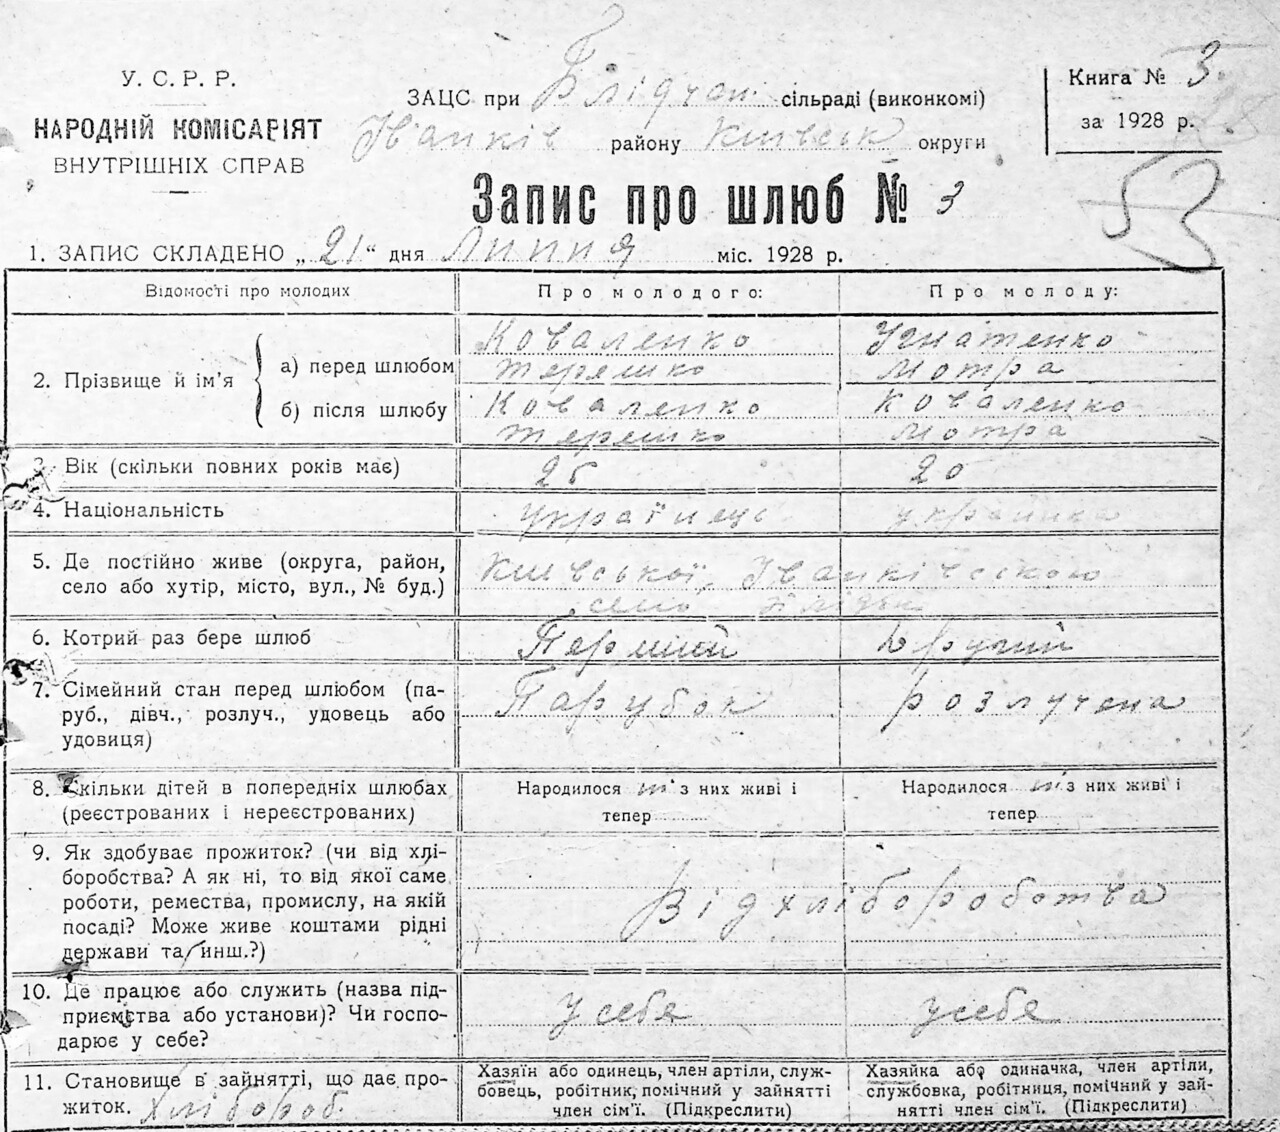 У. С. Р. Р.
НАРОДНІЙ КОМІСАРІЯТ
ВНУТРІШНІХ СПРАВ
ЗАЦС при Блідчан. сільраді (виконкомі)
Іванків району Київськ округи
Книга № 3.
за 1928 р.
53
Запис про шлюб № 3
1. ЗАПИС СКЛАДЕНО „21“ дня Липня міс. 1928 р.
Відомості про молодих
Про молодого:
Про молоду:
2. Прізвище й ім’я
а) перед шлюбом
Коваленко
Терешко
Ігнатенко
Мотра
б) після шлюбу
Коваленко
Терешко
Коваленко
Мотра
3. Вік (скільки повних років має)
20
4. Національність
Українець
украинка
5. Де постійно живе (округа, район,
село або хутір, місто, вул., № буд.)
Київської, Іванківського
село
6. Котрий раз бере шлюб
Перший
Другий
7. Сімейний стан перед шлюбом (па-
руб., дівч., розлуч., удовець або
удовиця)
Парубок
розлучена
8. Скільки дітей в попередніх шлюбах
(реєстрованих і нереєстрованих)
Народилося з них живі і
тепер
Народилося з них живі і
тепер
9. Як здобуває прожиток? (чи від хлі-
боробства? А як ні, то від якої саме
роботи, ремества, промислу, на якій
посаді? Може живе коштами рідні
держави та инш.?)
Від хлібороботва
10. Де працює або служить (назва під-
приємства або установи)? Чи госпо-
дарює у себе?
у себе
у себе
11. Становище в зайнятті, що дає про-
житок. Хлібороб.
Хазяїн або одинець, член артілі, служ-
бовець, робітник, помічний у зайнятті
член сім’ї. (Підкреслити)
Хазяйка або одиначка, член артіли,
службовка, робітниця, помічний у зай-
нятті член сім’ї. (Підкреслити)